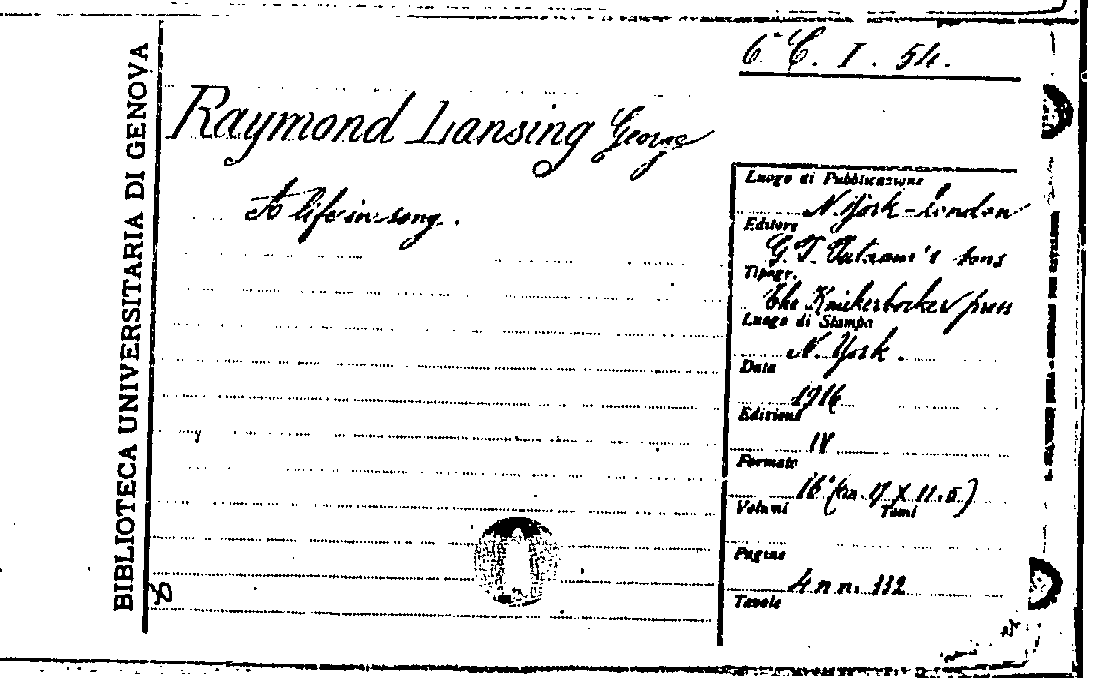 6 C. I. 54.
BIBLIOTECA UNIVERSITARIA DI GENOVA
Raymond Lansing George
A life in song.
Luogo di Pubblicazione
N. York - London
Editore
G. T. Putnam's sons
Tipogr.
The Knikerbocker press
Luogo di Stampa
N. York.
Data
1916
Edizione
IV
Formato
16° (cm. 17 X 11.5)
Volumi Tomi
Pagine
4 n n. 332
Tavole